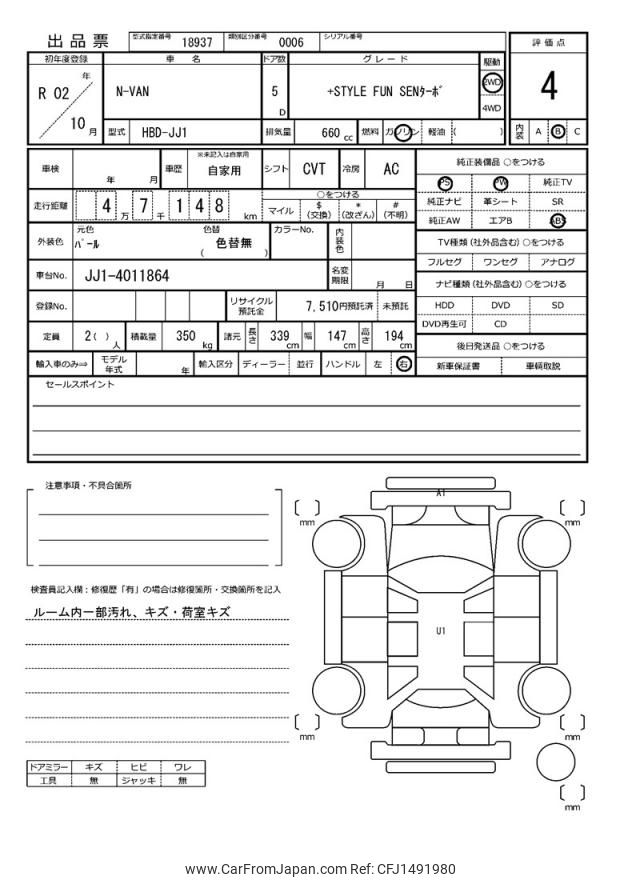 出品票 型式指定番号 18937 類別区分番号 0006 シリアル番号
評価点
4
内装 A B C
初年度登録 車名 ドア数 グレード 駆動
R 02 年 10 月 N-VAN 5 D +STYLE FUN SENターボ 2WD 4WD
型式 HBD-JJ1 排気量 660 cc 燃料 ガソリン 軽油 ( )
車検 年 月 車歴 ※未記入は自家用 自家用 シフト CVT 冷房 AC
走行距離 4 万 7 千 1 4 8 km ○をつける
マイル $(交換) *(改ざん) #(不明)
外装色 元色 パール 色替 色替無 ( ) カラーNo. 内装色
車台No. JJ1-4011864 名変期限 月 日
登録No. リサイクル預託金 7,510円預託済 未預託
定員 2( ) 人 積載量 350 kg 諸元 長さ 339 cm 幅 147 cm 高さ 194 cm
輸入車のみ⇒ モデル年式 年 輸入区分 ディーラー 並行 ハンドル 左 右
純正装備品 ○をつける
PS PW 純正TV
純正ナビ 革シート SR
純正AW エアB ABS
TV種類(社外品含む) ○をつける
フルセグ ワンセグ アナログ
ナビ種類(社外品含む) ○をつける
HDD DVD SD
DVD再生可 CD
後日発送品 ○をつける
新車保証書 車輌取説
セールスポイント
注意事項・不具合箇所
検査員記入欄:修復歴「有」の場合は修復箇所・交換箇所を記入
ルーム内一部汚れ、キズ・荷室キズ
ドアミラー キズ ヒビ ワレ
工具 無 ジャッキ 無
A1
U1
mm
mm
mm
mm
mm
www.CarFromJapan.com Ref: CFJ1491980